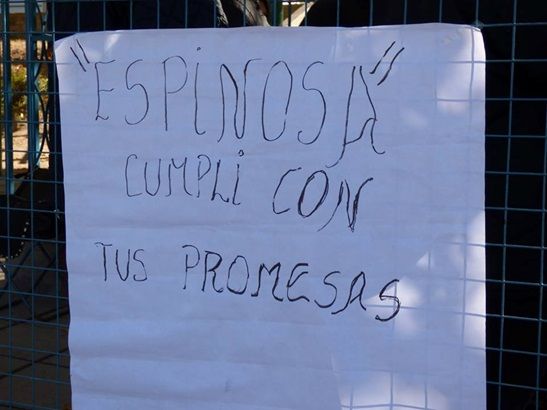 "ESPINOSA"
CUMPLI CON
TUS PROMESAS